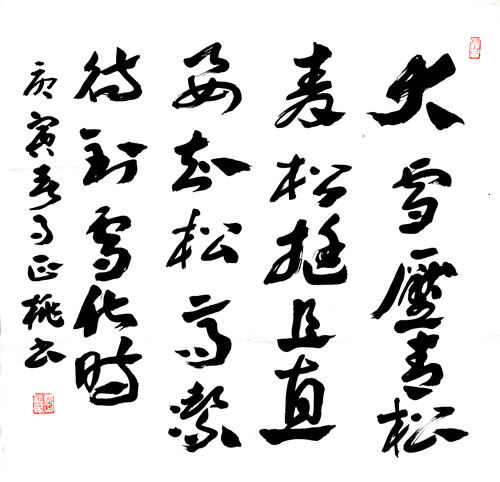 大雪壓青松
青松挺且直
要知松高潔
待到雪化時
庚寅春正桃书